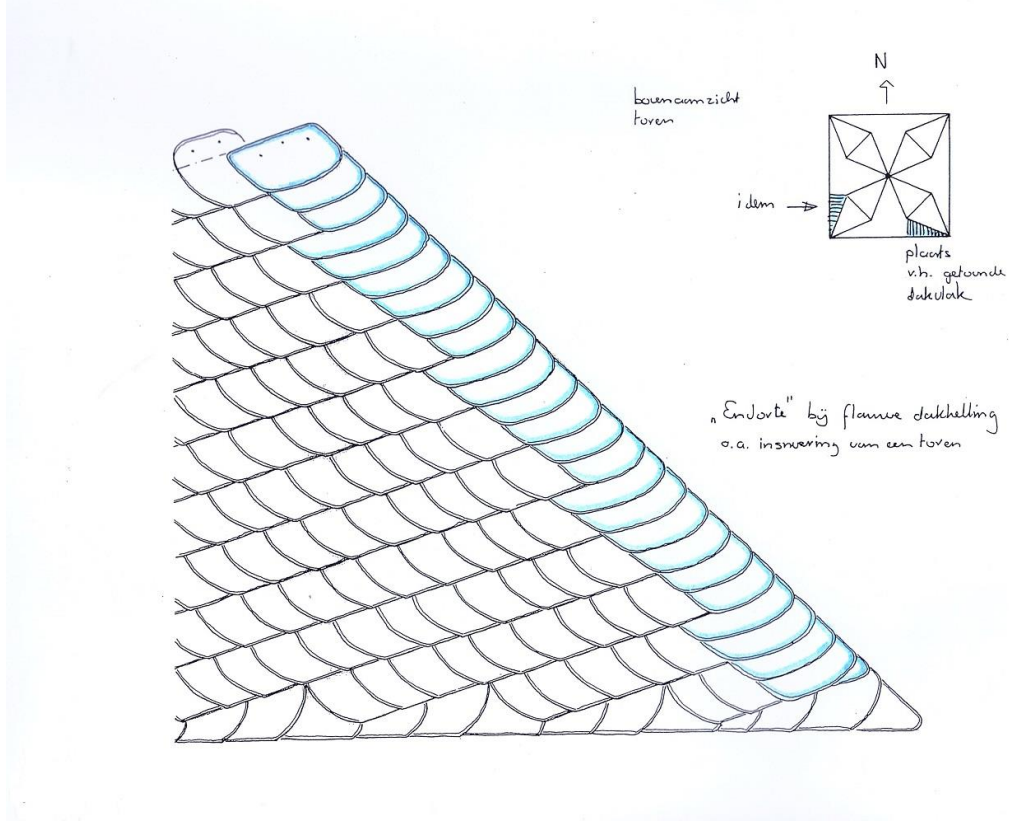 bovenaanzicht
toren
N
idem
plaats
v.h. getoonde
dakvlak
„Endorte" bij flauwe dakhelling
o.a. insnoering van een toren